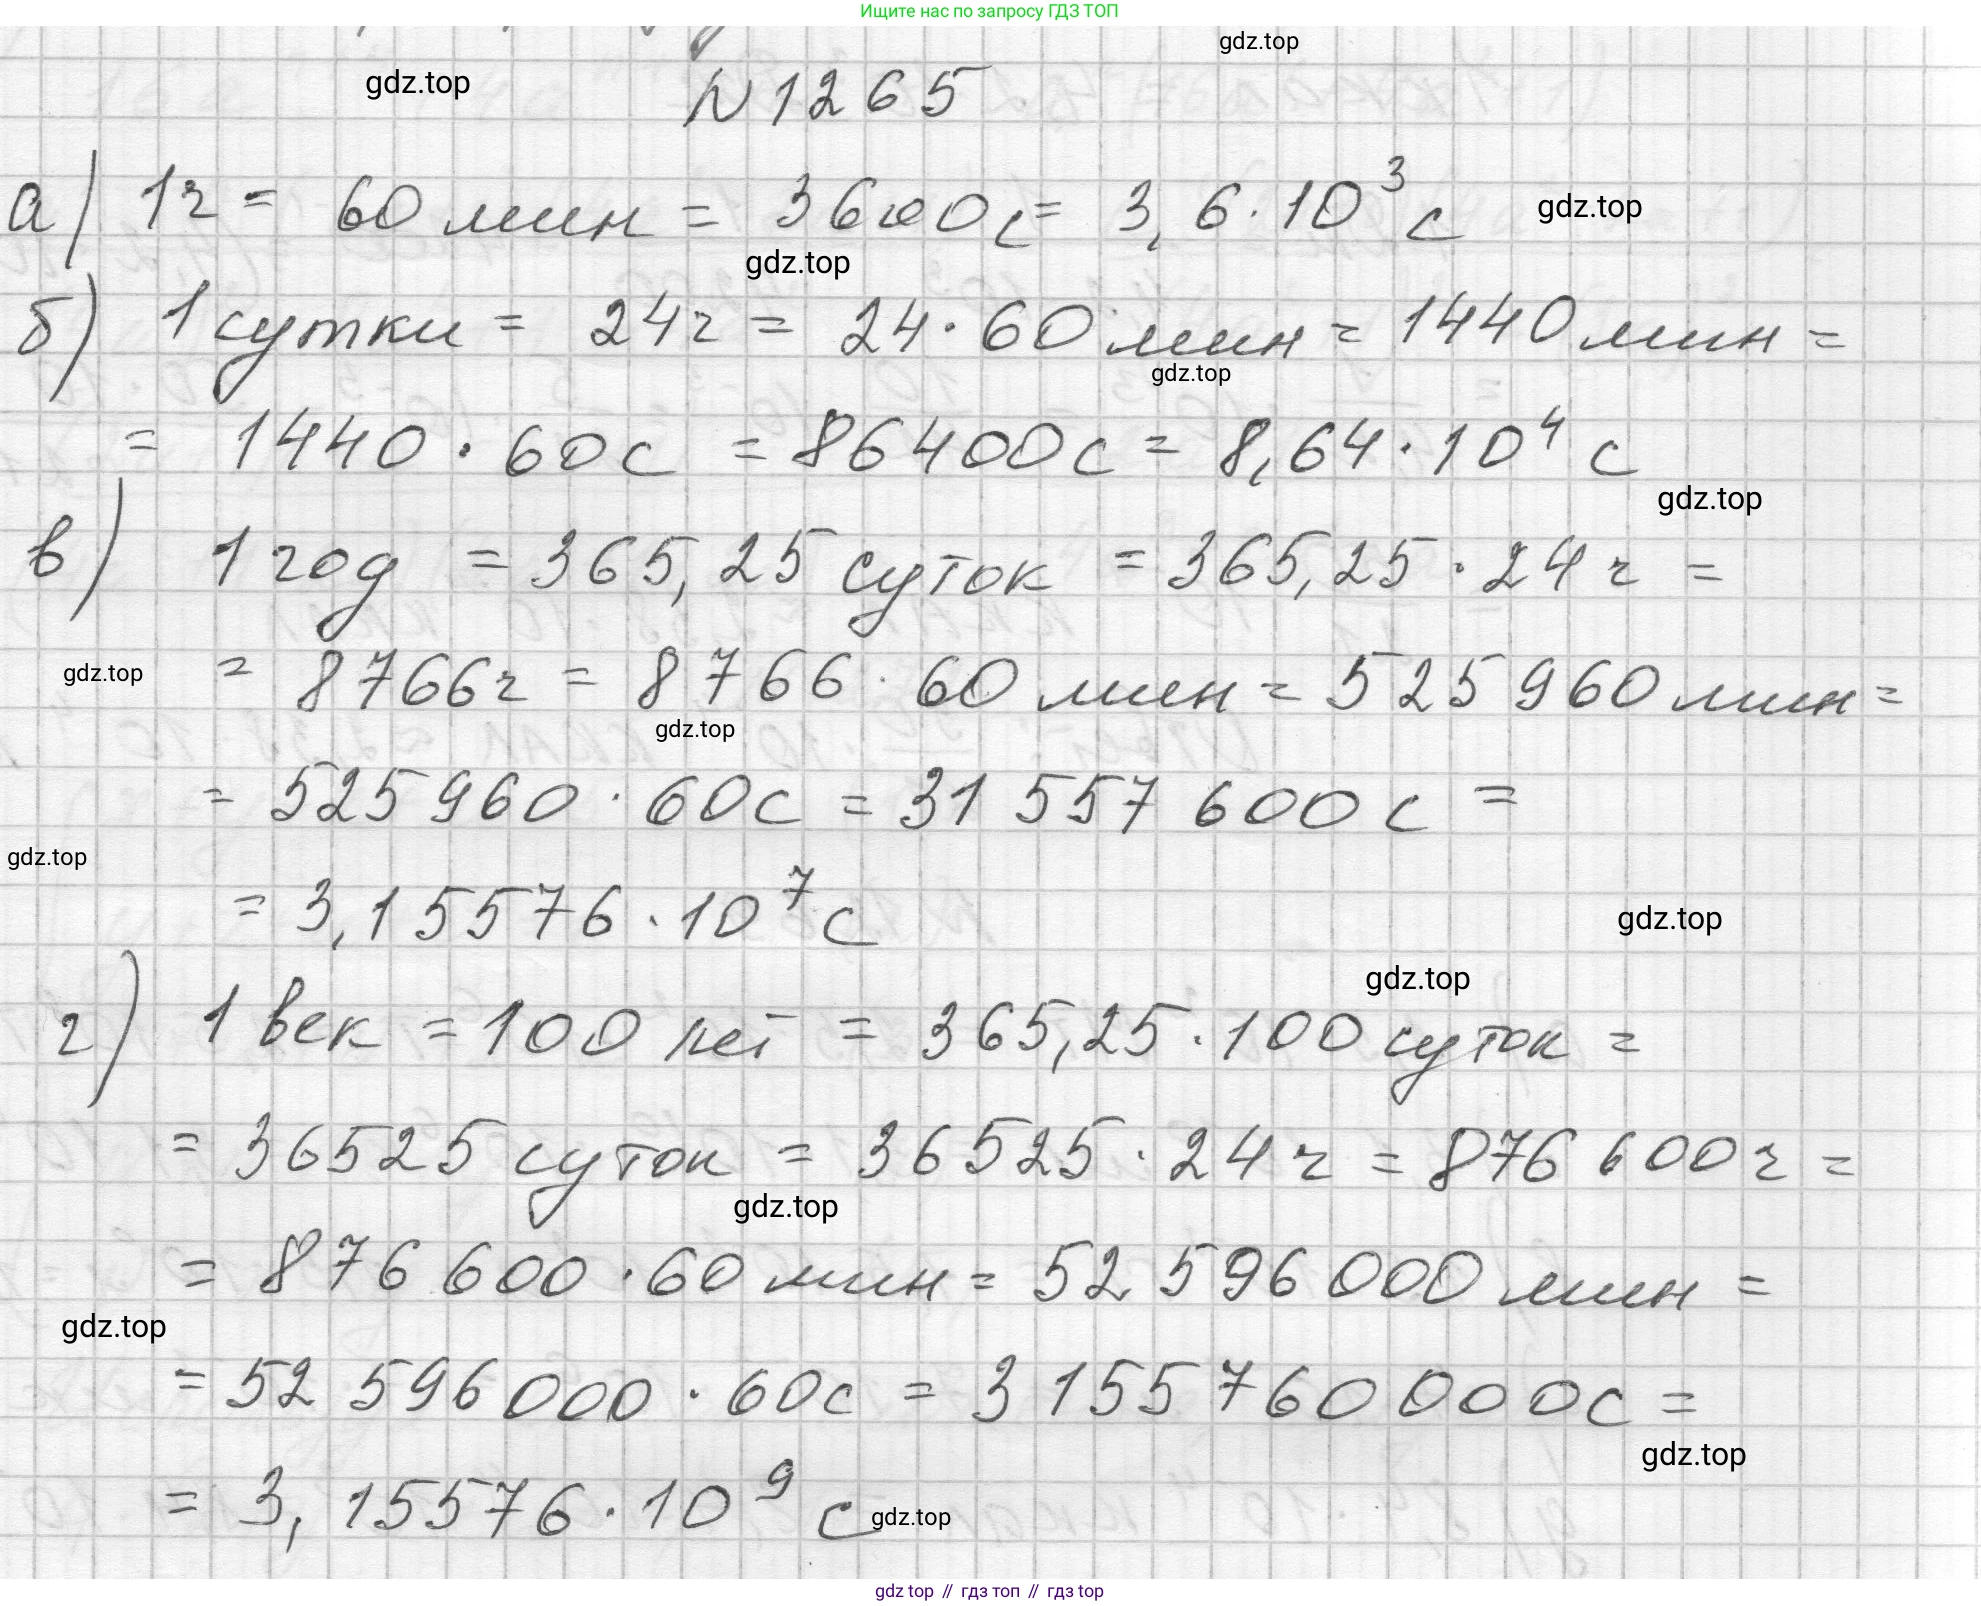 Ищите нас по запросу ГДЗ ТОП
gdz.top
gdz.top
N 1265
а) 1ч = 60 мин = 3600 с = 3,6 · 10³ с
gdz.top
gdz.top
б) 1 сутки = 24 ч = 24 · 60 мин = 1440 мин =
gdz.top
= 1440 · 60 с = 86400 с = 8,64 · 10⁴ с
gdz.top
в) 1 год = 365,25 суток = 365,25 · 24 ч =
gdz.top
= 8766 ч = 8766 · 60 мин = 525 960 мин =
gdz.top
= 525 960 · 60 с = 31 557 600 с =
gdz.top
= 3,15576 · 10⁷ с
gdz.top
gdz.top
г) 1 век = 100 лет = 365,25 · 100 суток =
= 36525 суток = 36525 · 24 ч = 876 600 ч =
gdz.top
= 876 600 · 60 мин = 52 596 000 мин =
gdz.top
= 52 596 000 · 60 с = 3 155 760 000 с =
gdz.top
= 3,15576 · 10⁹ с
gdz.top
gdz top // гдз топ // гдз top